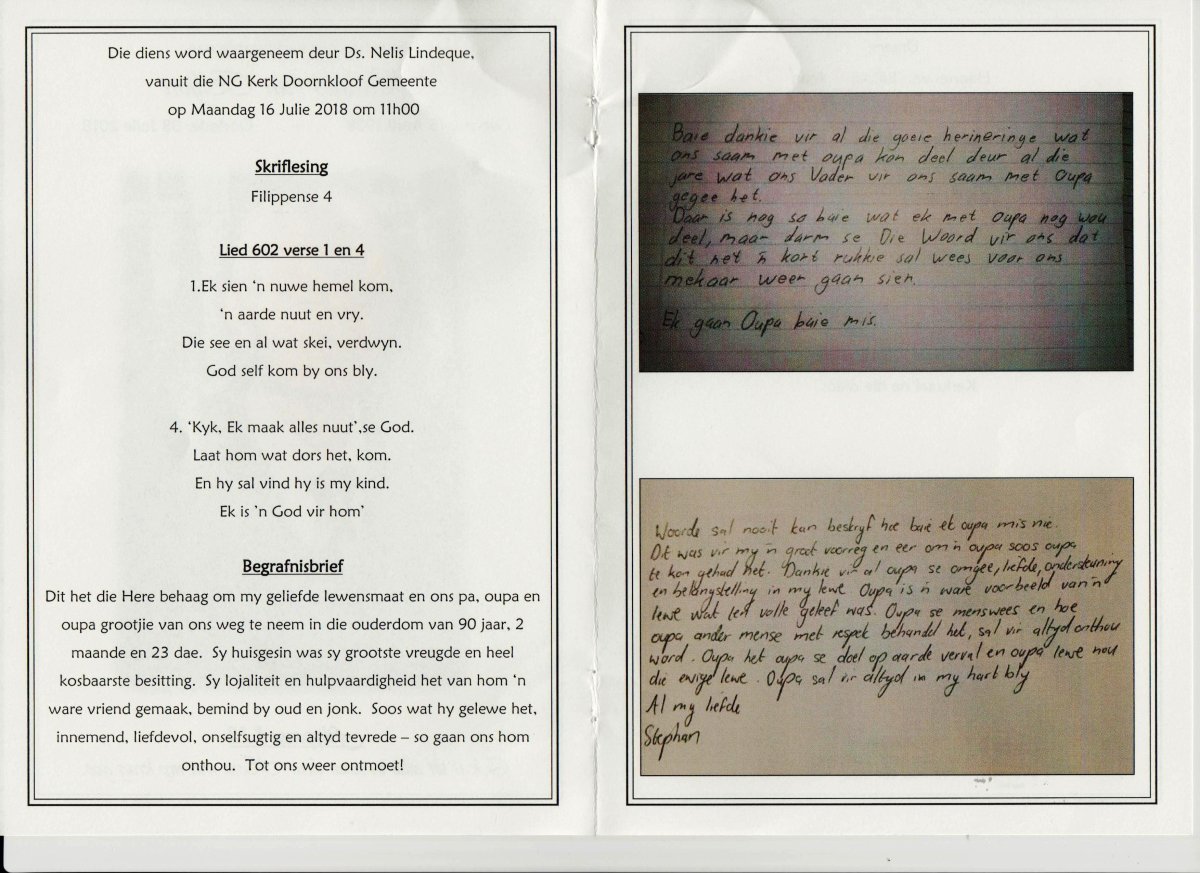 Die diens word waargeneem deur Ds. Nelis Lindeque,
vanuit die NG Kerk Doornkloof Gemeente
op Maandag 16 Julie 2018 om 11h00
Skriflesing
Filippense 4
Lied 602 verse 1 en 4
1.Ek sien ‘n nuwe hemel kom,
‘n aarde nuut en vry.
Die see en al wat skei, verdwyn.
God self kom by ons bly.
4. ‘Kyk, Ek maak alles nuut’,se God.
Laat hom wat dors het, kom.
En hy sal vind hy is my kind.
Ek is ’n God vir hom’
Begrafnisbrief
Dit het die Here behaag om my geliefde lewensmaat en ons pa, oupa en
oupa grootjie van ons weg te neem in die ouderdom van 90 jaar, 2
maande en 23 dae. Sy huisgesin was sy grootste vreugde en heel
kosbaarste besitting. Sy lojaliteit en hulpvaardigheid het van hom ‘n
ware vriend gemaak, bemind by oud en jonk. Soos wat hy gelewe het,
innemend, liefdevol, onselfsugtig en altyd tevrede – so gaan ons hom
onthou. Tot ons weer ontmoet!
Baie dankie vir al die goeie herineringe wat
ons saam met oupa kon deel deur al die
jare wat ons Vader vir ons saam met Oupa
gegee het.
Daar is nog so baie wat ek met Oupa nog wou
deel, maar darm se Die Woord vir ons dat
dit net 'n kort rukkie sal wees voor ons
mekaar weer gaan sien.
Ek gaan Oupa baie mis.
Woorde sal nooit kan beskryf hoe baie ek oupa mis nie.
Dit was vir my 'n groot voorreg en eer om 'n oupa soos oupa
te kon gehad het. Dankie vir al oupa se omgee, liefde, ondersteuning
en belangstelling in my lewe. Oupa is 'n ware voorbeeld van 'n
lewe wat ten volle geleef was. Oupa se menswees en hoe
oupa ander mense met respek behandel het, sal vir altyd onthou
word. Oupa het oupa se doel op aarde vervul en oupa lewe nou
die ewige lewe. Oupa sal vir altyd in my hart bly
Al my liefde
Stephan